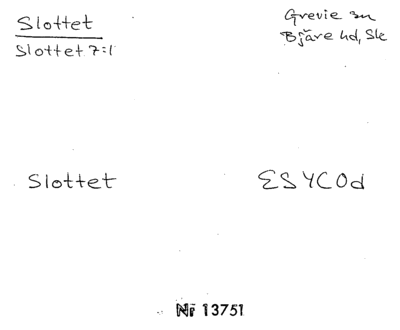 Slottet
Slottet 7:1
Grevie sn
Bjäre hd, Sk
Slottet
ESYCOd
Nr 13751